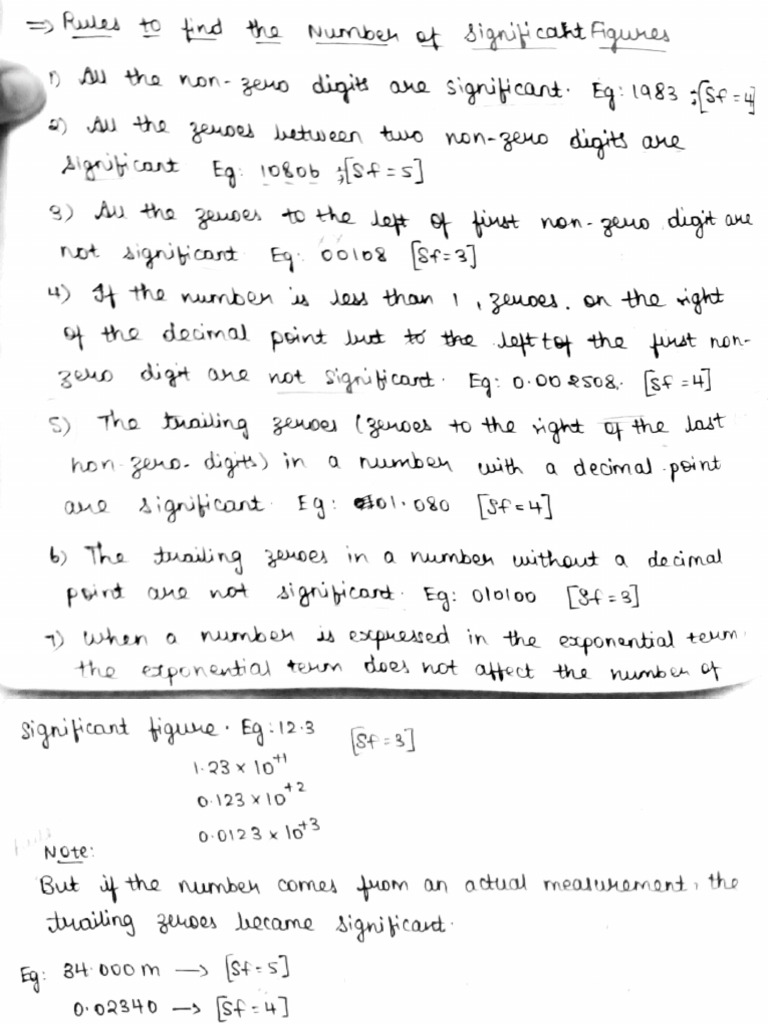 ⇒ Rules to find the Number of Significant Figures
1) All the non-zero digits are significant. Eg: 1983 ;[Sf=4]
2) All the zeroes between two non-zero digits are
significant Eg: 10806 ;[Sf=5]
3) All the zeroes to the left of first non-zero digit are
not significant Eg: 00108 [Sf=3]
4) If the number is less than 1, zeroes. on the right
of the decimal point but to the left of the first non-
zero digit are not significant. Eg: 0.002508. [Sf=4]
5) The trailing zeroes (zeroes to the right of the last
non-zero-digits) in a number with a decimal point
are significant Eg: 01.080 [Sf=4]
6) The trailing zeroes in a number without a decimal
point are not significant. Eg: 010100 [Sf=3]
7) When a number is expressed in the exponential term
the exponential term does not affect the number of
significant figure. Eg: 12.3 [Sf=3]
1.23 × 10⁺¹
0.123 × 10⁺²
0.0123 × 10⁺³
Note:
But if the number comes from an actual measurement, the
trailing zeroes became significant.
Eg: 34.000m → [Sf=5]
0.02340 → [Sf=4]